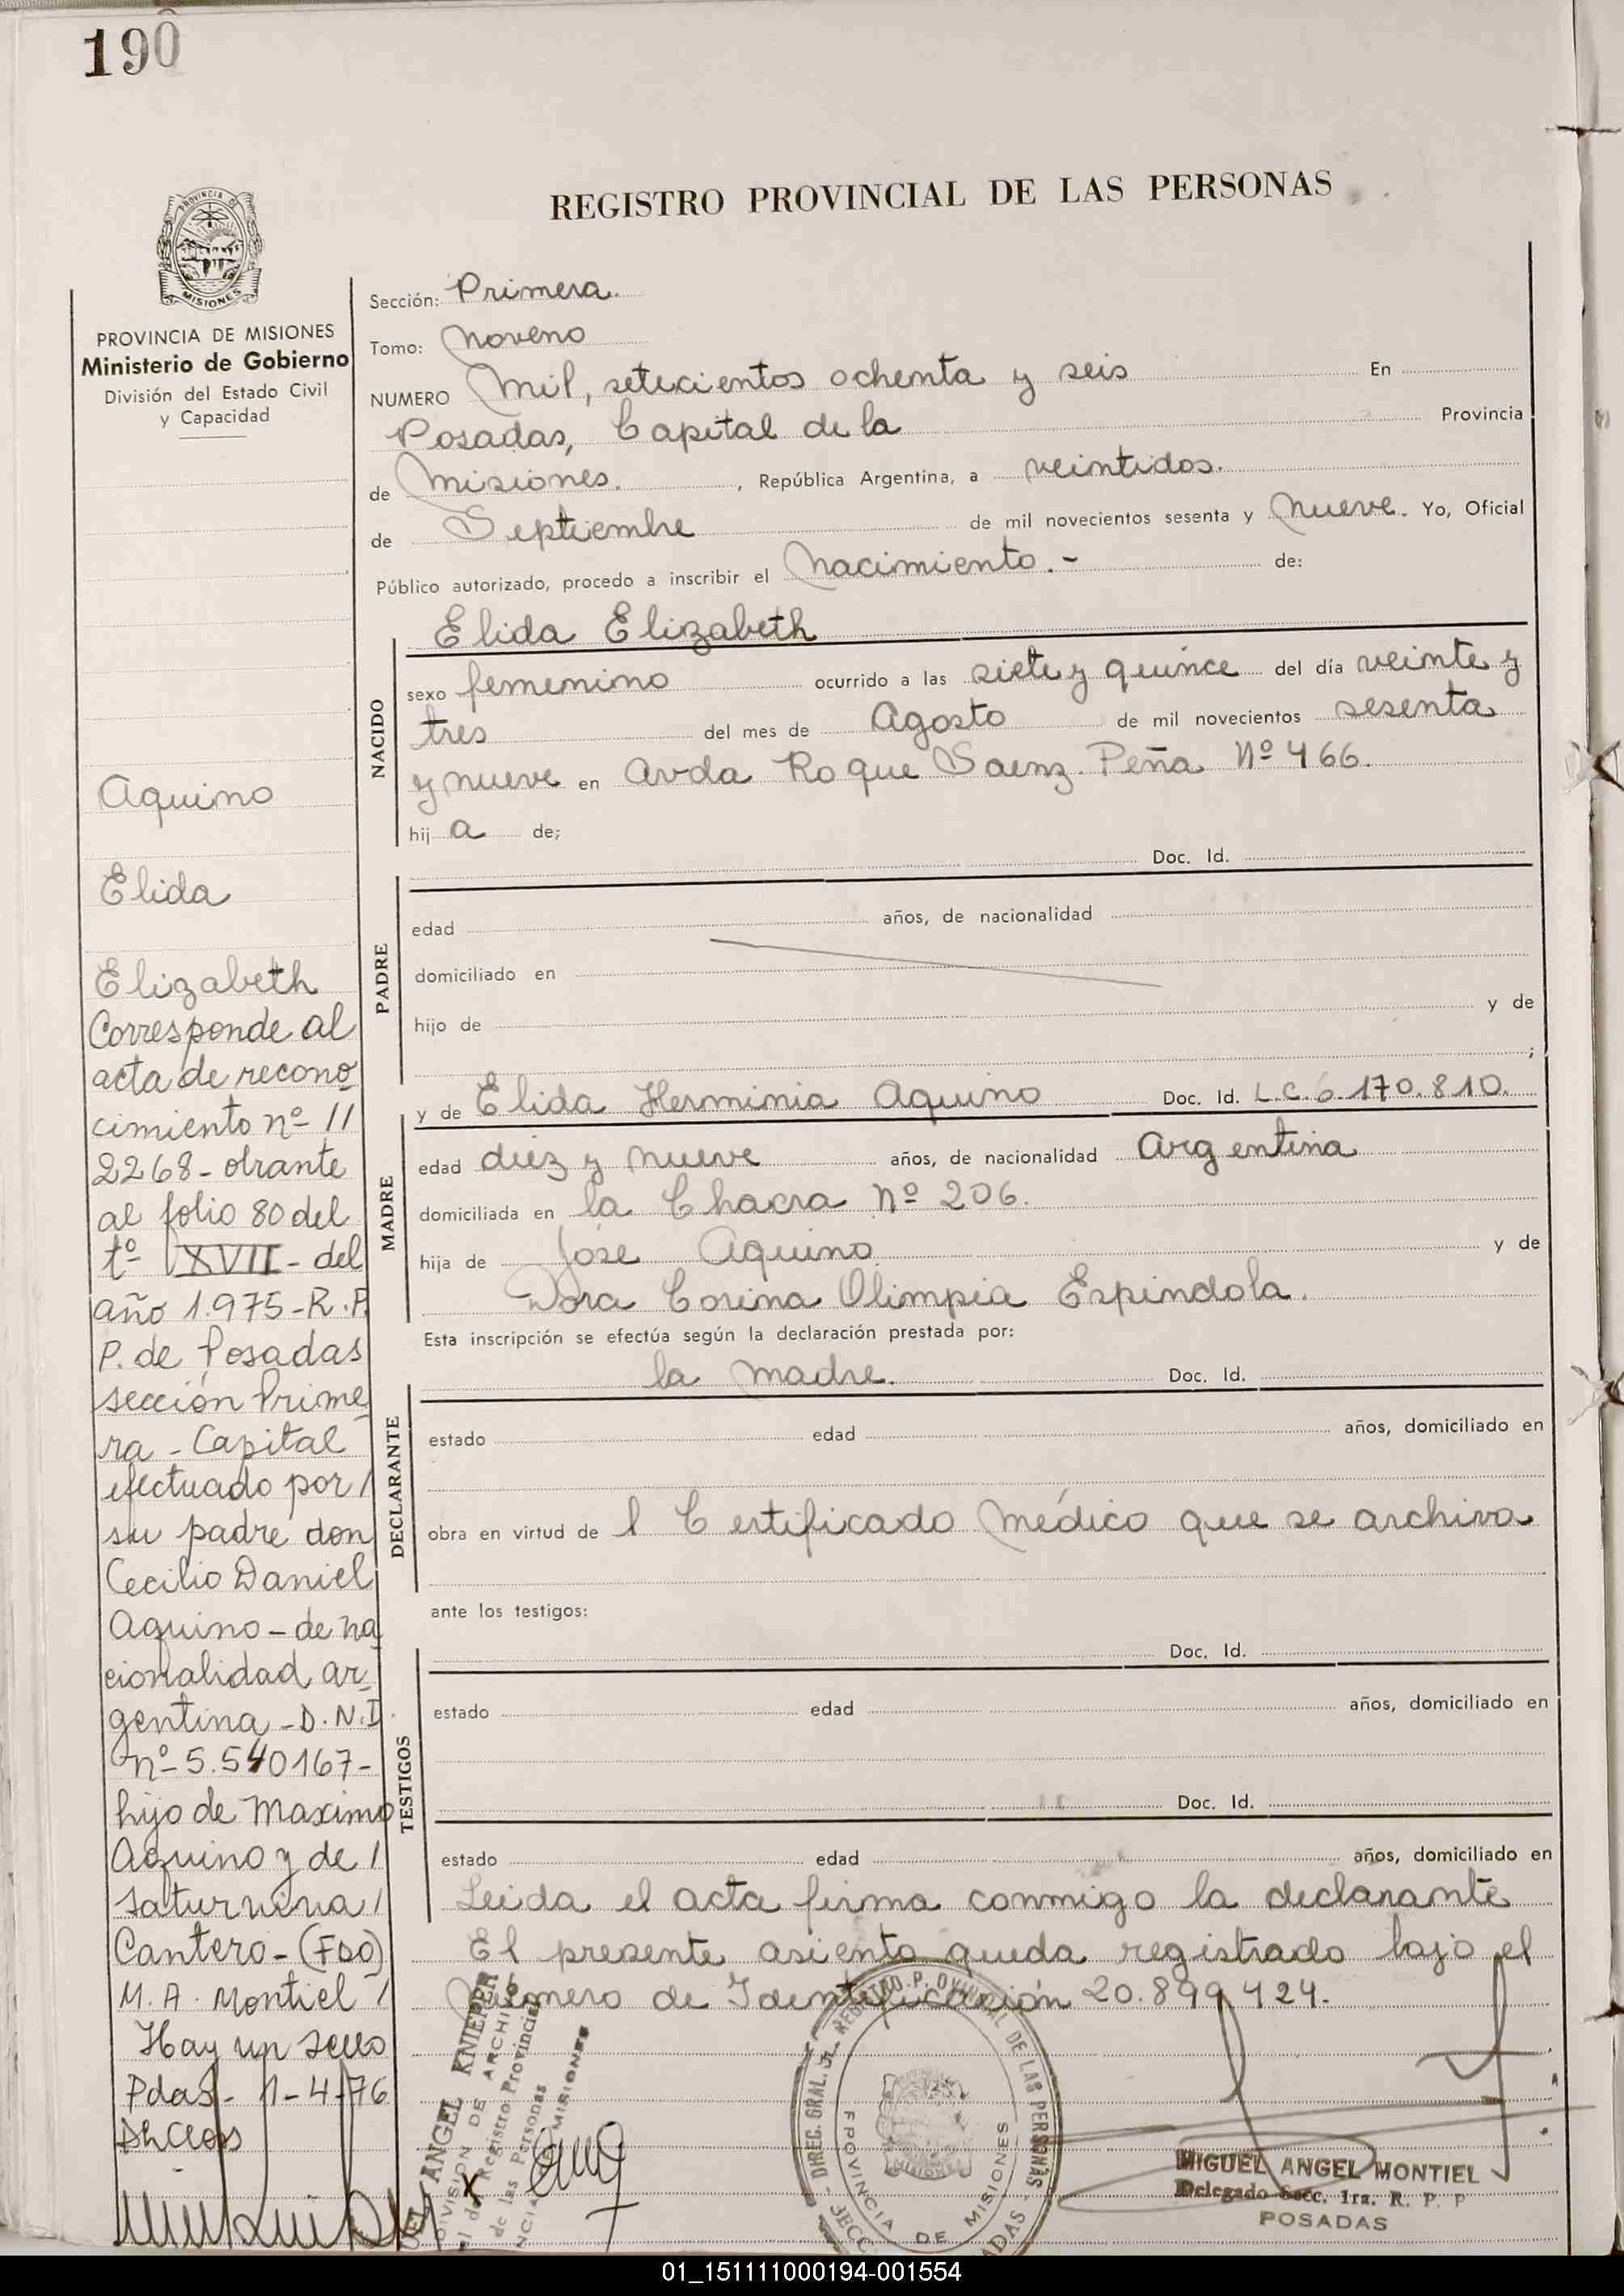 190
REGISTRO PROVINCIAL DE LAS PERSONAS
PROVINCIA DE
MISIONES
PROVINCIA DE MISIONES
Ministerio de Gobierno
División del Estado Civil
y Capacidad
Aquino
Elida
Elizabeth
Corresponde al
acta de recono
cimiento nº //
2268 - obrante
al folio 80 del
tº XVII - del
año 1.975 - R. P.
P. de Posadas
sección Prime
ra - Capital
efectuado por /
su padre don
Cecilio Daniel
Aquino - de na
cionalidad ar
gentina - D. N. I.
nº 5.540167 -
hijo de Maximo
Aquino y de /
Saturnina /
Cantero - (FDO)
M. A. Montiel /
Hay un sello
Pdas - 1-4-76
Sección: Primera.
Tomo: Noveno
NUMERO Mil, setecientos ochenta y seis En
Posadas, Capital de la Provincia
de Misiones. , República Argentina, a veintidos.
de Septiembre de mil novecientos sesenta y Nueve. Yo, Oficial
Público autorizado, procedo a inscribir el Nacimiento. - de:
NACIDO
Elida Elizabeth
sexo femenino ocurrido a las siete y quince del día veinte y
tres del mes de Agosto de mil novecientos sesenta
y nueve en Avda Roque Saenz Peña Nº 466.
hij a de;
PADRE
Doc. Id.
edad años, de nacionalidad
domiciliado en
hijo de y de
;
MADRE
y de Elida Herminia Aquino Doc. Id. L.C. 6.170.810.
edad diez y nueve años, de nacionalidad Argentina
domiciliada en la Chacra Nº 206.
hija de José Aquino y de
Dora Corina Olimpia Espindola.
Esta inscripción se efectúa según la declaración prestada por:
DECLARANTE
la madre. Doc. Id.
estado edad años, domiciliado en
obra en virtud de l Certificado Médico que se archiva
ante los testigos:
TESTIGOS
Doc. Id.
estado edad años, domiciliado en
Doc. Id.
estado edad años, domiciliado en
Leida el acta firma conmigo la declarante
El presente asiento queda registrado bajo el
Número de Identificación 20.899.424.
ANGEL KNIEPER
DIVISION DE ARCHI
del Registro Provincial
de las Personas
MISIONES
DIREC. GRAL. REGISTRO PROVINCIAL DE LAS PERSONAS
PROVINCIA DE MISIONES
MIGUEL ANGEL MONTIEL
Delegado Secc. 1ra. R. P. P
POSADAS
01_151111000194-001554